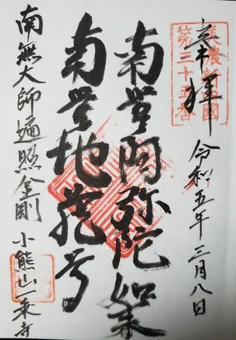 奉拝 令和五年三月八日
南無阿弥陀如来
南無地蔵尊
南無大師遍照金剛 小熊山一乗寺